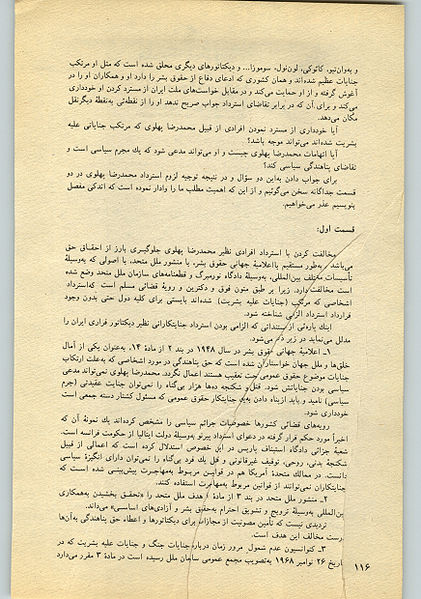 و یه‌وان‌تیو، کائوکی، لون‌نول، سوموزا... و دیکتاتورهای دیگری محلق شده است که مثل او مرتکب
جنایات عظیم شده‌اند و همان کشوری که ادعای دفاع از حقوق بشر را دارد او و همکاران او را در
آغوش گرفته و از او حمایت می‌کند و در مقابل خواست‌های ملت ایران از مسترد کردن او خودداری
می‌کند و برای آن که در برابر تقاضای استرداد جواب صریح ندهد او را از نقطه‌ئی به‌نقطهٔ دیگر نقل
مکان می‌دهد.
آیا خودداری از مسترد نمودن افرادی از قبیل محمدرضا پهلوی که مرتکب جنایاتی علیه
بشریت شده‌اند می‌تواند موجه باشد؟
آیا اتهامات محمدرضا پهلوی چیست و او می‌تواند مدعی شود که یك مجرم سیاسی است و
تقاضای پناهندگی سیاسی کند؟
برای جواب دادن به‌این دو سؤال و در نتیجه توجیه لزوم استرداد محمدرضا پهلوی در دو
قسمت جداگانه سخن می‌گوئیم و از این که اهمیت مطلب ما را وادار نموده است که اندکی مفصل
بنویسیم عذر می‌خواهیم.
قسمت اول:
مخالفت کردن با استرداد افرادی نظیر محمدرضا پهلوی جلوگیری بارز از احقاق حق
می‌باشد به‌طور مستقیم با اعلامیهٔ جهانی حقوق بشر، با منشور ملل متحد، با اصولی که به‌وسیلهٔ
تأسیسات مختلف بین‌المللی، به‌وسیلهٔ دادگاه نورمبرگ و قطعنامه‌های سازمان ملل متحد وضع شده
است مخالفت دارد. زیرا بر طبق متون فوق و دکترین و رویهٔ قضائی مسلم است که استرداد
اشخاصی که مرتکب (جنایات علیه بشریت) شده‌اند بایستی برای کلیه دول حتی بدون وجود
قرارداد استرداد الزامی شناخته شود.
اینك پاره‌ئی از مستنداتی که الزامی بودن استرداد جنایتکارانی نظیر دیکتاتور فراری ایران را
مدلل می‌نماید در زیر ذکر می‌شود.
۱ـ اعلامیهٔ جهانی حقوق بشر در سال ۱۹۴۸ در بند ۲ از مادهٔ ۱۴، به‌عنوان یکی از آمال
خلق‌ها و ملل جهان خواستار آن شده است که حق پناهندگی در مورد اشخاصی که به‌علت ارتکاب
جنایات موضوع حقوق عمومی تحت تعقیب هستند اعمال نگردد. محمدرضا پهلوی نمی‌تواند مدعی
سیاسی بودن جنایاتش شود. قتل و شکنجه ده‌ها هزار بی‌گناه را نمی‌توان جنایت عقیدتی (جرم
سیاسی) نامید و باید از پناه دادن به‌یك جنایتکار حقوق عمومی که مسئول کشتار دسته جمعی است
خودداری شود.
رویه‌های قضائی کشورها خصوصیات جرائم سیاسی را مشخص کرده‌اند یك نمونهٔ آن که
اخیراً مورد حکم قرار گرفته در دعوای استرداد پیرنو به‌وسیلهٔ دولت ایتالیا از حکومت فرانسه است.
شعبهٔ جزائی دادگاه استیناف پاریس در این خصوص استدلال کرده است که اعمالی از قبیل
شکنجهٔ بدنی، روحی، توقیف غیرقانونی و قتل یك فرد بی‌گناه را نمی‌توان دارای انگیزهٔ سیاسی
دانست. در ممالك متحدهٔ آمریکا هم در قوانین مربوط به‌مهاجرت پیش‌بینی شده است که
جنایتکاران نمی‌توانند از قوانین مربوط به‌مهاجرت استفاده کنند.
۲ـ منشور ملل متحد در بند ۳ از مادهٔ ۱ هدف ملل متحد را «تحقق بخشیدن به‌همکاری
بین‌المللی به‌وسیلهٔ ترویج و تشویق احترام به‌حقوق بشر و آزادی‌های اساسی» می‌داند.
تردیدی نیست که تأمین مصونیت از مجازات برای دیکتاتورها و اعطاء حق پناهندگی به‌آن‌ها
درست مخالف این هدف است.
۳ـ کنوانسیون عدم شمول مرور زمان دربارهٔ جنایات جنگ و جنایات علیه بشریت که در
تاریخ ۲۶ نوامبر ۱۹۶۸ به‌تصویب مجمع عمومی سازمان ملل رسیده است در مادهٔ ۳ مقرر می‌دارد
۱۱۶